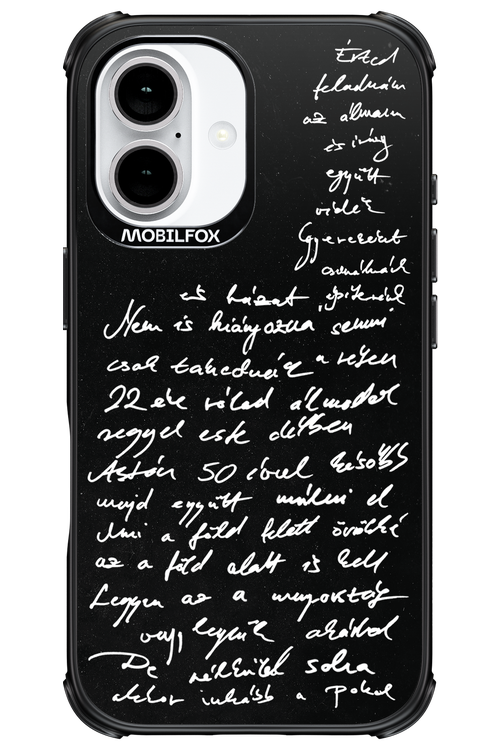 MOBILFOX
Érted
feladnám
az álmaim
és irány
együtt
vidék
Gyerekeket
csinálnánk
és házat építenék
Nem is hiányozna semmi
csak takednék a
22 éve rólad álmodok
reggel este délben
Aztán 50 évvel később
majd együtt múlni el
Ami a föld felett örökké
az a föld alatt is kell
Legyen az a mennyország
vagy legyünk akárhol
De nélküled soha
akkor inkább a Pokol